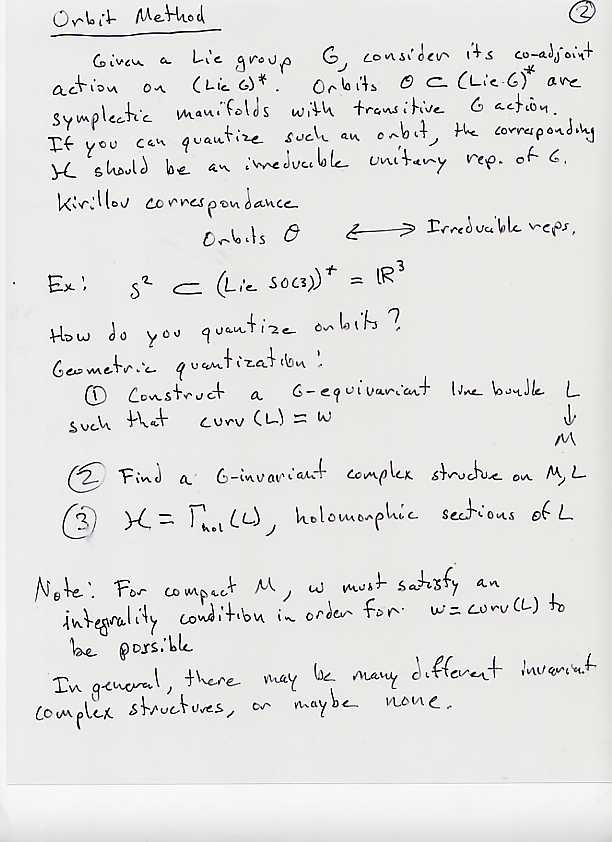 Orbit Method ②
Given a Lie group G, consider its co-adjoint
action on (Lie G)*. Orbits O ⊂ (Lie G)* are
symplectic manifolds with transitive G action.
If you can quantize such an orbit, the corresponding
H should be an irreducible unitary rep. of G.
Kirillov correspondance
Orbits O ⟷ Irreducible reps.
Ex: S² ⊂ (Lie SO(3))* = ℝ³
How do you quantize orbits?
Geometric quantization:
① Construct a G-equivariant line bundle L
such that curv(L) = ω ↓
M
② Find a G-invariant complex structure on M, L
③ H = Γhol(L), holomorphic sections of L
Note: For compact M, ω must satisfy an
integrality condition in order for ω = curv(L) to
be possible
In general, there may be many different invariant
complex structures, or maybe none.